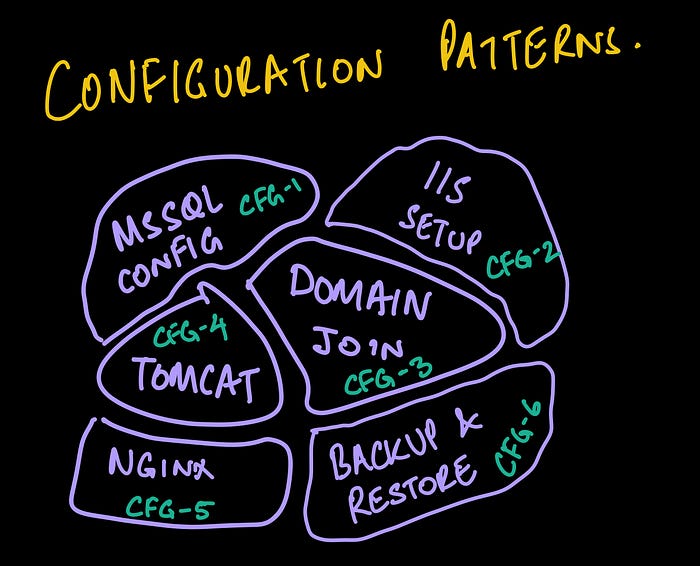 CONFIGURATION PATTERNS.
MSSQL CFG-1
CONFIG
IIS
SETUP
CFG-2
DOMAIN
JOIN
CFG-3
CFG-4
TOMCAT
NGINX
CFG-5
BACKUP &
RESTORE
CFG-6